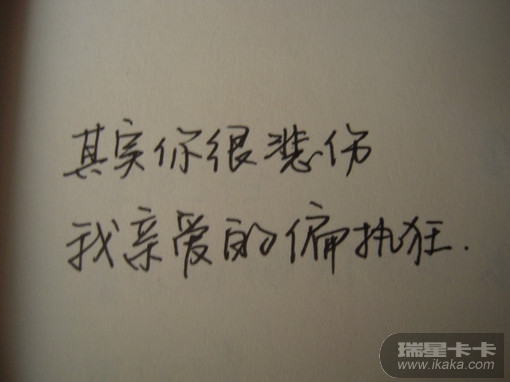 其实你很悲伤
我亲爱的偏执狂.
瑞星卡卡
www.ikaka.com